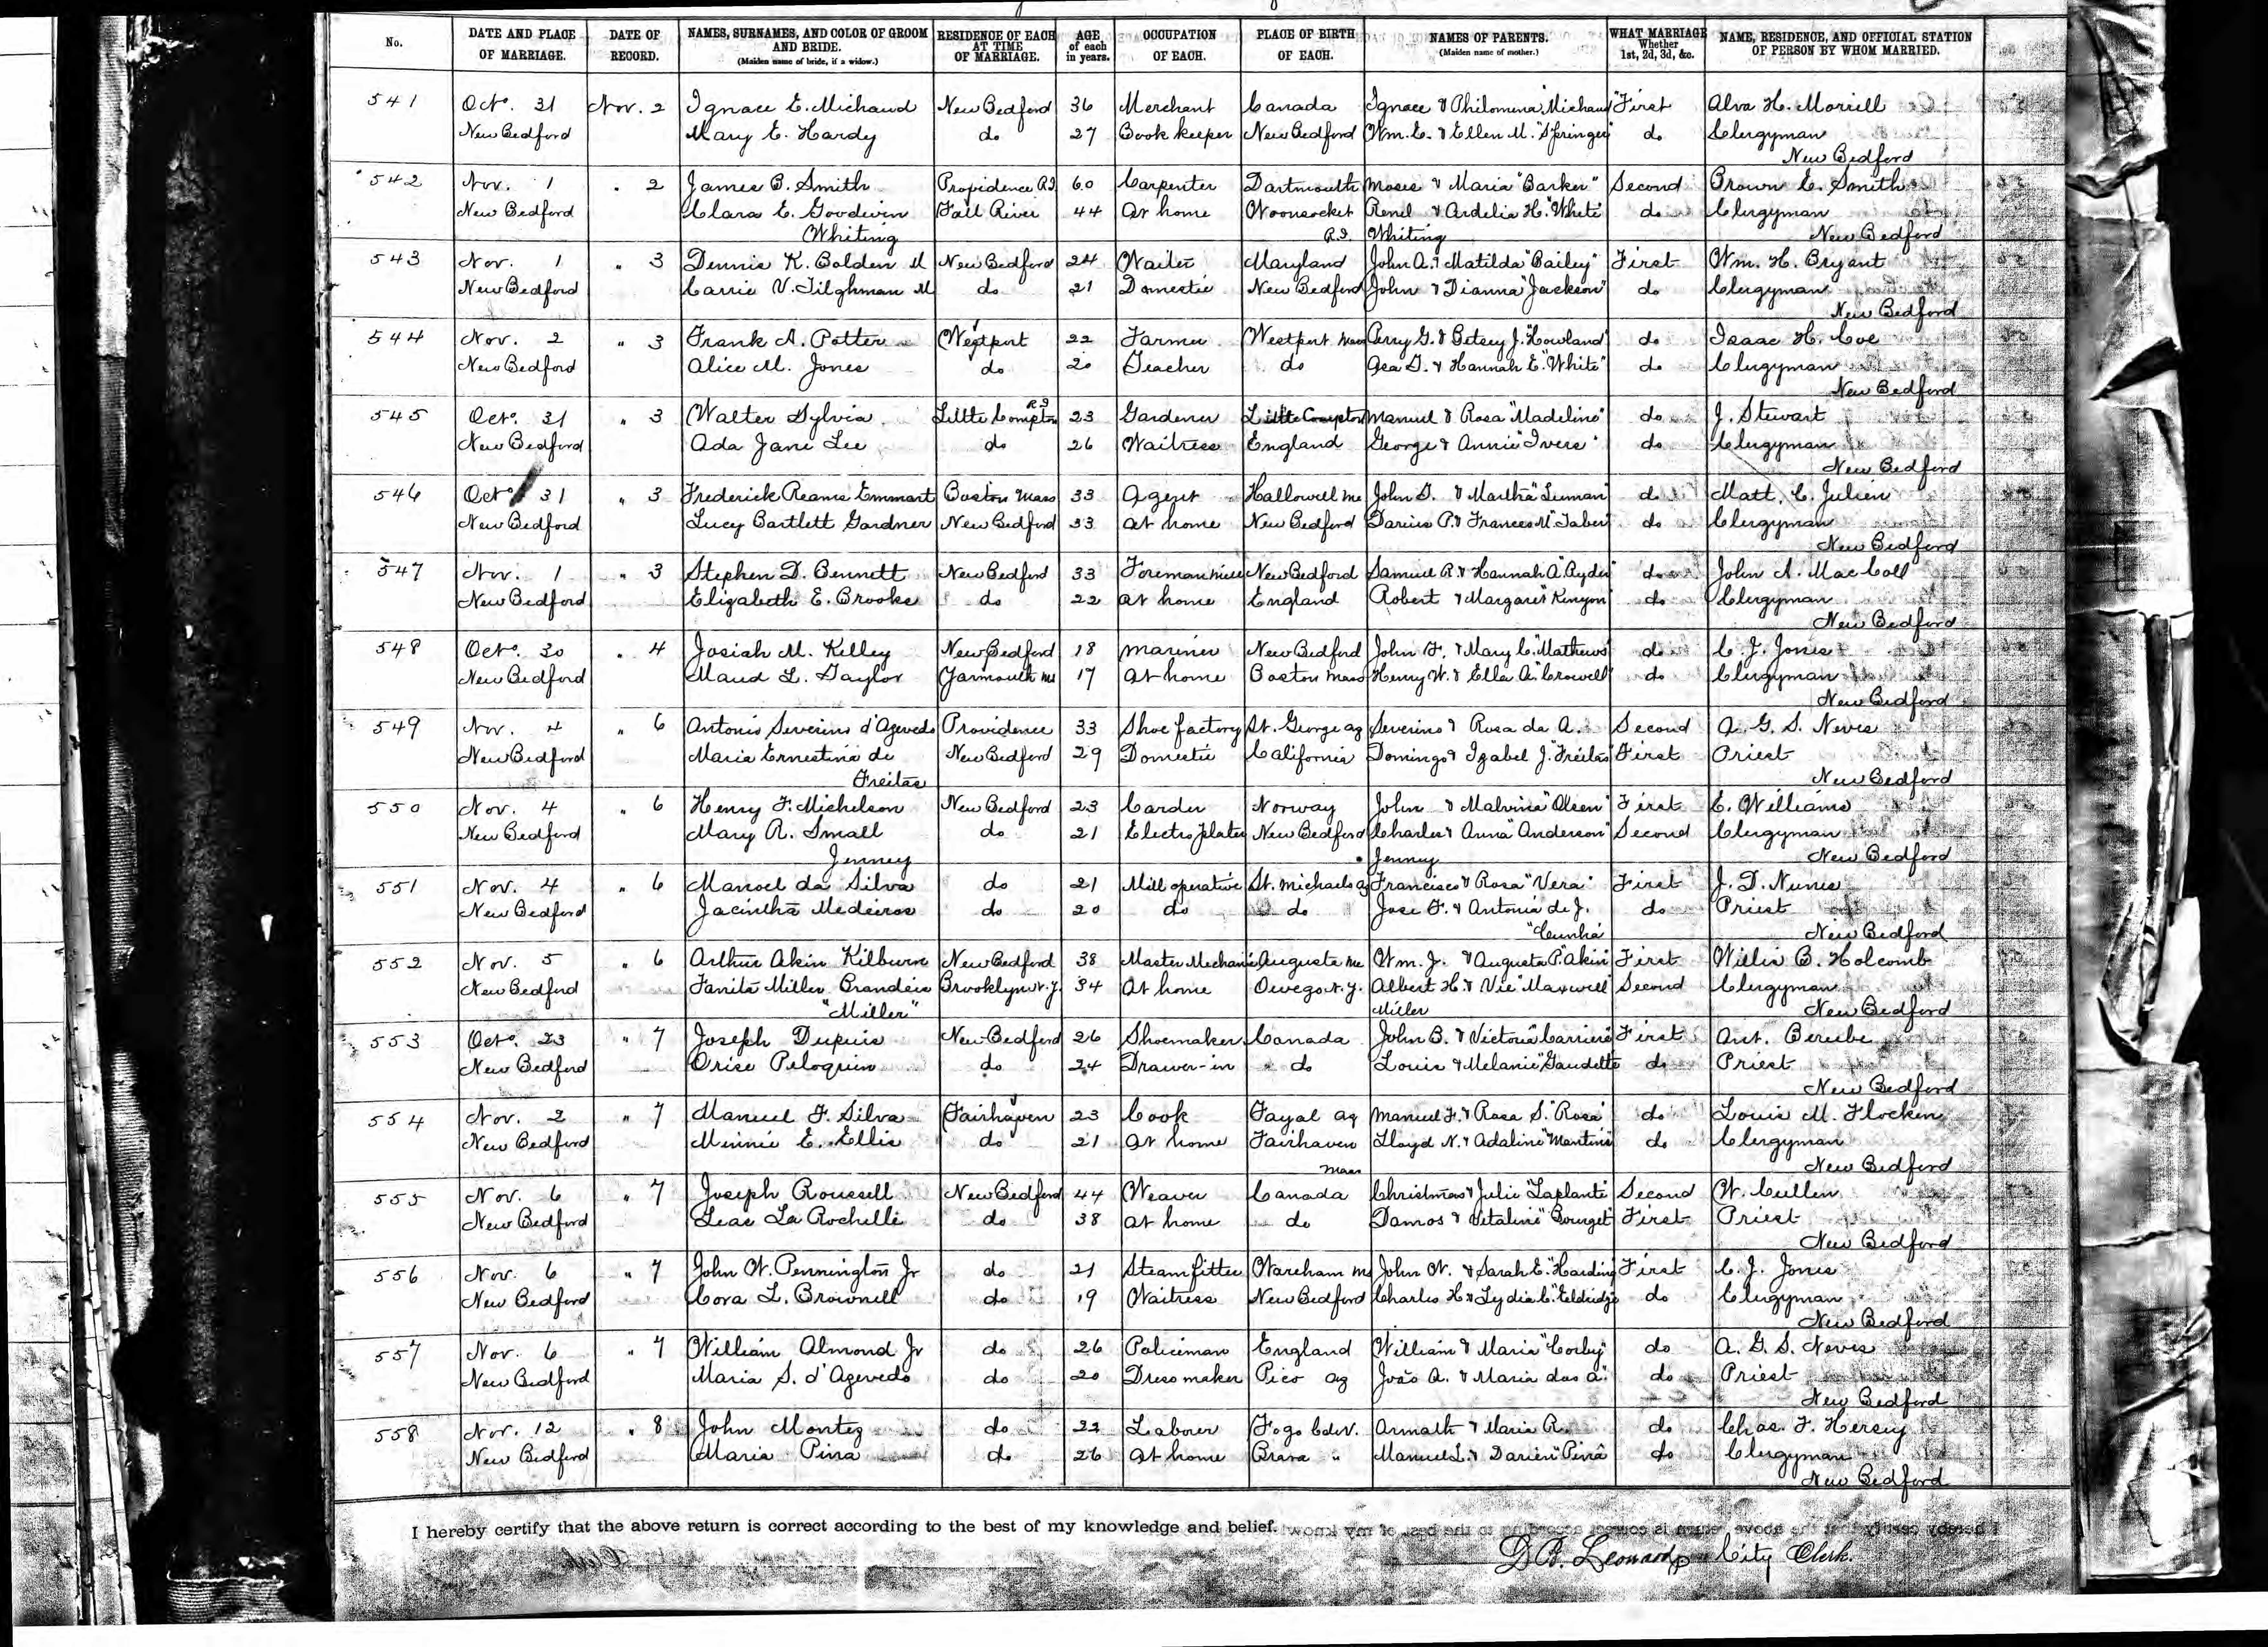 No. DATE AND PLACE OF MARRIAGE. DATE OF RECORD. NAMES, SURNAMES, AND COLOR OF GROOM AND BRIDE. (Maiden name of bride, if a widow.) RESIDENCE OF EACH AT TIME OF MARRIAGE. AGE of each in years. OCCUPATION OF EACH. PLACE OF BIRTH OF EACH. NAMES OF PARENTS. (Maiden name of mother.) WHAT MARRIAGE Whether 1st, 2d, 3d, &c. NAME, RESIDENCE, AND OFFICIAL STATION OF PERSON BY WHOM MARRIED.
541 Oct. 31 Nov. 2 Ignace E. Michaud New Bedford 36 Merchant Canada Ignace & Philomena Michaud First Alva H. Morrill
New Bedford Mary E. Hardy do 27 Book keeper New Bedford Wm. E. & Ellen M. "Springer" do Clergyman
New Bedford
542 Nov. 1 " 2 James B. Smith Providence R.I. 60 Carpenter Dartmouth Moses & Maria "Barker" Second Brown E. Smith
New Bedford Clara E. Goodwin Fall River 44 At home Woonsocket & Ardelia H. "White" do Clergyman
Whiting R.I. Whiting New Bedford
543 Nov. 1 " 3 Dennis K. Bolden M New Bedford 24 Waiter Maryland John A. & Matilda "Bailey" First Wm. H. Bryant
New Bedford Carrie V. Tilghman M do 21 Domestic New Bedford John & Dianna "Jackson" do Clergyman
New Bedford
544 Nov. 2 " 3 Frank A. Potter Westport 22 Farmer Westport Mass Perry G. & Betsey J. "Howland" do Isaac H. Coe
New Bedford Alice M. Jones do 20 Teacher do Asa D. & Hannah E. "White" do Clergyman
New Bedford
545 Oct. 31 " 3 Walter Sylvia Little Compton R.I. 23 Gardener Little Compton Manuel & Rosa "Madelino" do J. Stewart
New Bedford Ada Jane Lee do 26 Waitress England George & Annie "Ivers" do Clergyman
New Bedford
546 Oct. 31 " 3 Frederick Reams Emmart Boston Mass 33 Agent Hallowell Me John D. & Martha do Matt. C. Julien
New Bedford Lucy Bartlett Gardner New Bedford 33 At home New Bedford Darius P. & Frances M. "Taber" do Clergyman
New Bedford
547 Nov. 1 " 3 Stephen D. Bennett New Bedford 33 Foreman Mill New Bedford Samuel R. & Hannah A. "Ryder" do John A. MacColl
New Bedford Elizabeth E. Brooks do 22 At home England Robert & Margaret "Kenyon" do Clergyman
New Bedford
548 Oct. 30 " 4 Josiah M. Kelley New Bedford 18 Mariner New Bedford John F. & Mary C. "Mathews" do C. J. Jones
New Bedford Maud L. Taylor Yarmouth Ms 17 At home Boston Mass Henry W. & Ella A. "Crowell" do Clergyman
New Bedford
549 Nov. 4 " 6 Antonio Severino d'Azevedo Providence 33 Shoe factory St. George Az Severino & Rosa da A. Second A. G. S. Neves
New Bedford Maria Ernestina de New Bedford 29 Domestic California Domingo & Izabel J. "Freitas" First Priest
Freitas New Bedford
550 Nov. 4 " 6 Henry F. Michelson New Bedford 23 Carder Norway John & Malvina "Olsen" First E. Williams
New Bedford Mary R. Small do 21 Electro plater New Bedford Charles & Anna "Anderson" Second Clergyman
Jenney Jenney New Bedford
551 Nov. 4 " 6 Manoel da Silva do 21 Mill operative St. Michaels Az Francisco & Rosa "Vera" First J. D. Nunes
New Bedford Jacintha Medeiros do 20 do do Jose F. & Antonia de J. do Priest
"Cunha" New Bedford
552 Nov. 5 " 6 Arthur Akin Kilburn New Bedford 38 Master Mechanic Augusta Me Wm. J. & Augusta P. "Akin" First Willis B. Holcomb
New Bedford Tanita Miller Brandeis Brooklyn N.Y. 34 At home Owego N.Y. Albert H. & Vie "Maxwell" Second Clergyman
"Miller" Miller New Bedford
553 Oct. 23 " 7 Joseph Dupuis New Bedford 26 Shoemaker Canada John B. & Victoria "Carriere" First Ant. Berube
New Bedford Orise Peloquin do 24 Drawer-in do Louis & Melanie "Gaudette" do Priest
New Bedford
554 Nov. 2 " 7 Manuel F. Silva Fairhaven 23 Cook Fayal Az Manuel F. & Rosa S. "Rosa" do Louis M. Flocken
New Bedford Minnie E. Ellis do 21 At home Fairhaven Lloyd N. & Adaline do Clergyman
Mass New Bedford
555 Nov. 6 " 7 Joseph Roussell New Bedford 44 Weaver Canada Christmas & Julie "Laplante" Second W. Cullen
New Bedford Leas La Rochelle do 38 At home do Damos & Vitaline "Bourget" First Priest
New Bedford
556 Nov. 6 " 7 John W. Pennington Jr do 21 Steam fitter Wareham Ms John W. & Sarah E. "Harding" First C. J. Jones
New Bedford Cora L. Brownell do 19 Waitress New Bedford Charles H. & Lydia C. "Eldridge" do Clergyman
New Bedford
557 Nov. 6 " 7 William Almond Jr do 26 Policeman England William & Maria "Corby" do A. G. S. Neves
New Bedford Maria S. d'Azevedo do 20 Dress maker Pico Az João A. & Maria das A. do Priest
New Bedford
558 Nov. 12 " 8 John Montez do 22 Laborer Fogo C. de V. Armath & Maria R. do Chas. F. Hersey
New Bedford Maria Pina do 26 At home Brava " Manuel L. & Darien "Pina" do Clergyman
New Bedford
I hereby certify that the above return is correct according to the best of my knowledge and belief.
D. B. Leonard City Clerk.